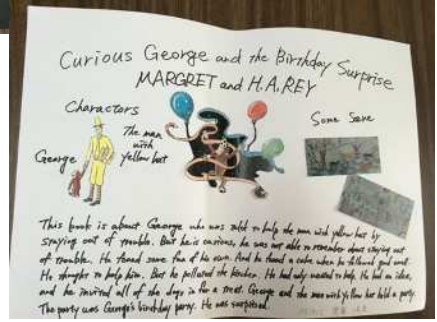 Curious George and the Birthday Surprise
MARGRET and H.A.REY
Charactors
The man
with
yellow hat
George
Some Sene
This book is about George who was told to help the man with yellow hat by
staying out of trouble. But he is curious, he was not able to remember about staying out
of trouble. He found some fun of his own. And he found a cake when he followed good smell.
He thought to help him. But he polluted the kitchen. He had only wanted to help. He had an idea,
and he invited all of the dogs in for a treat. George and the man with yellow hat held a party.
The party was George's birthday party. He was surprised.